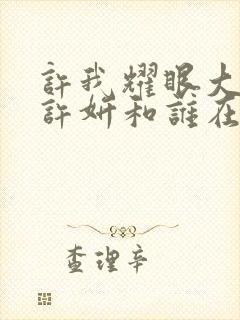 許我耀眼大
許妍和誰在
查理辛